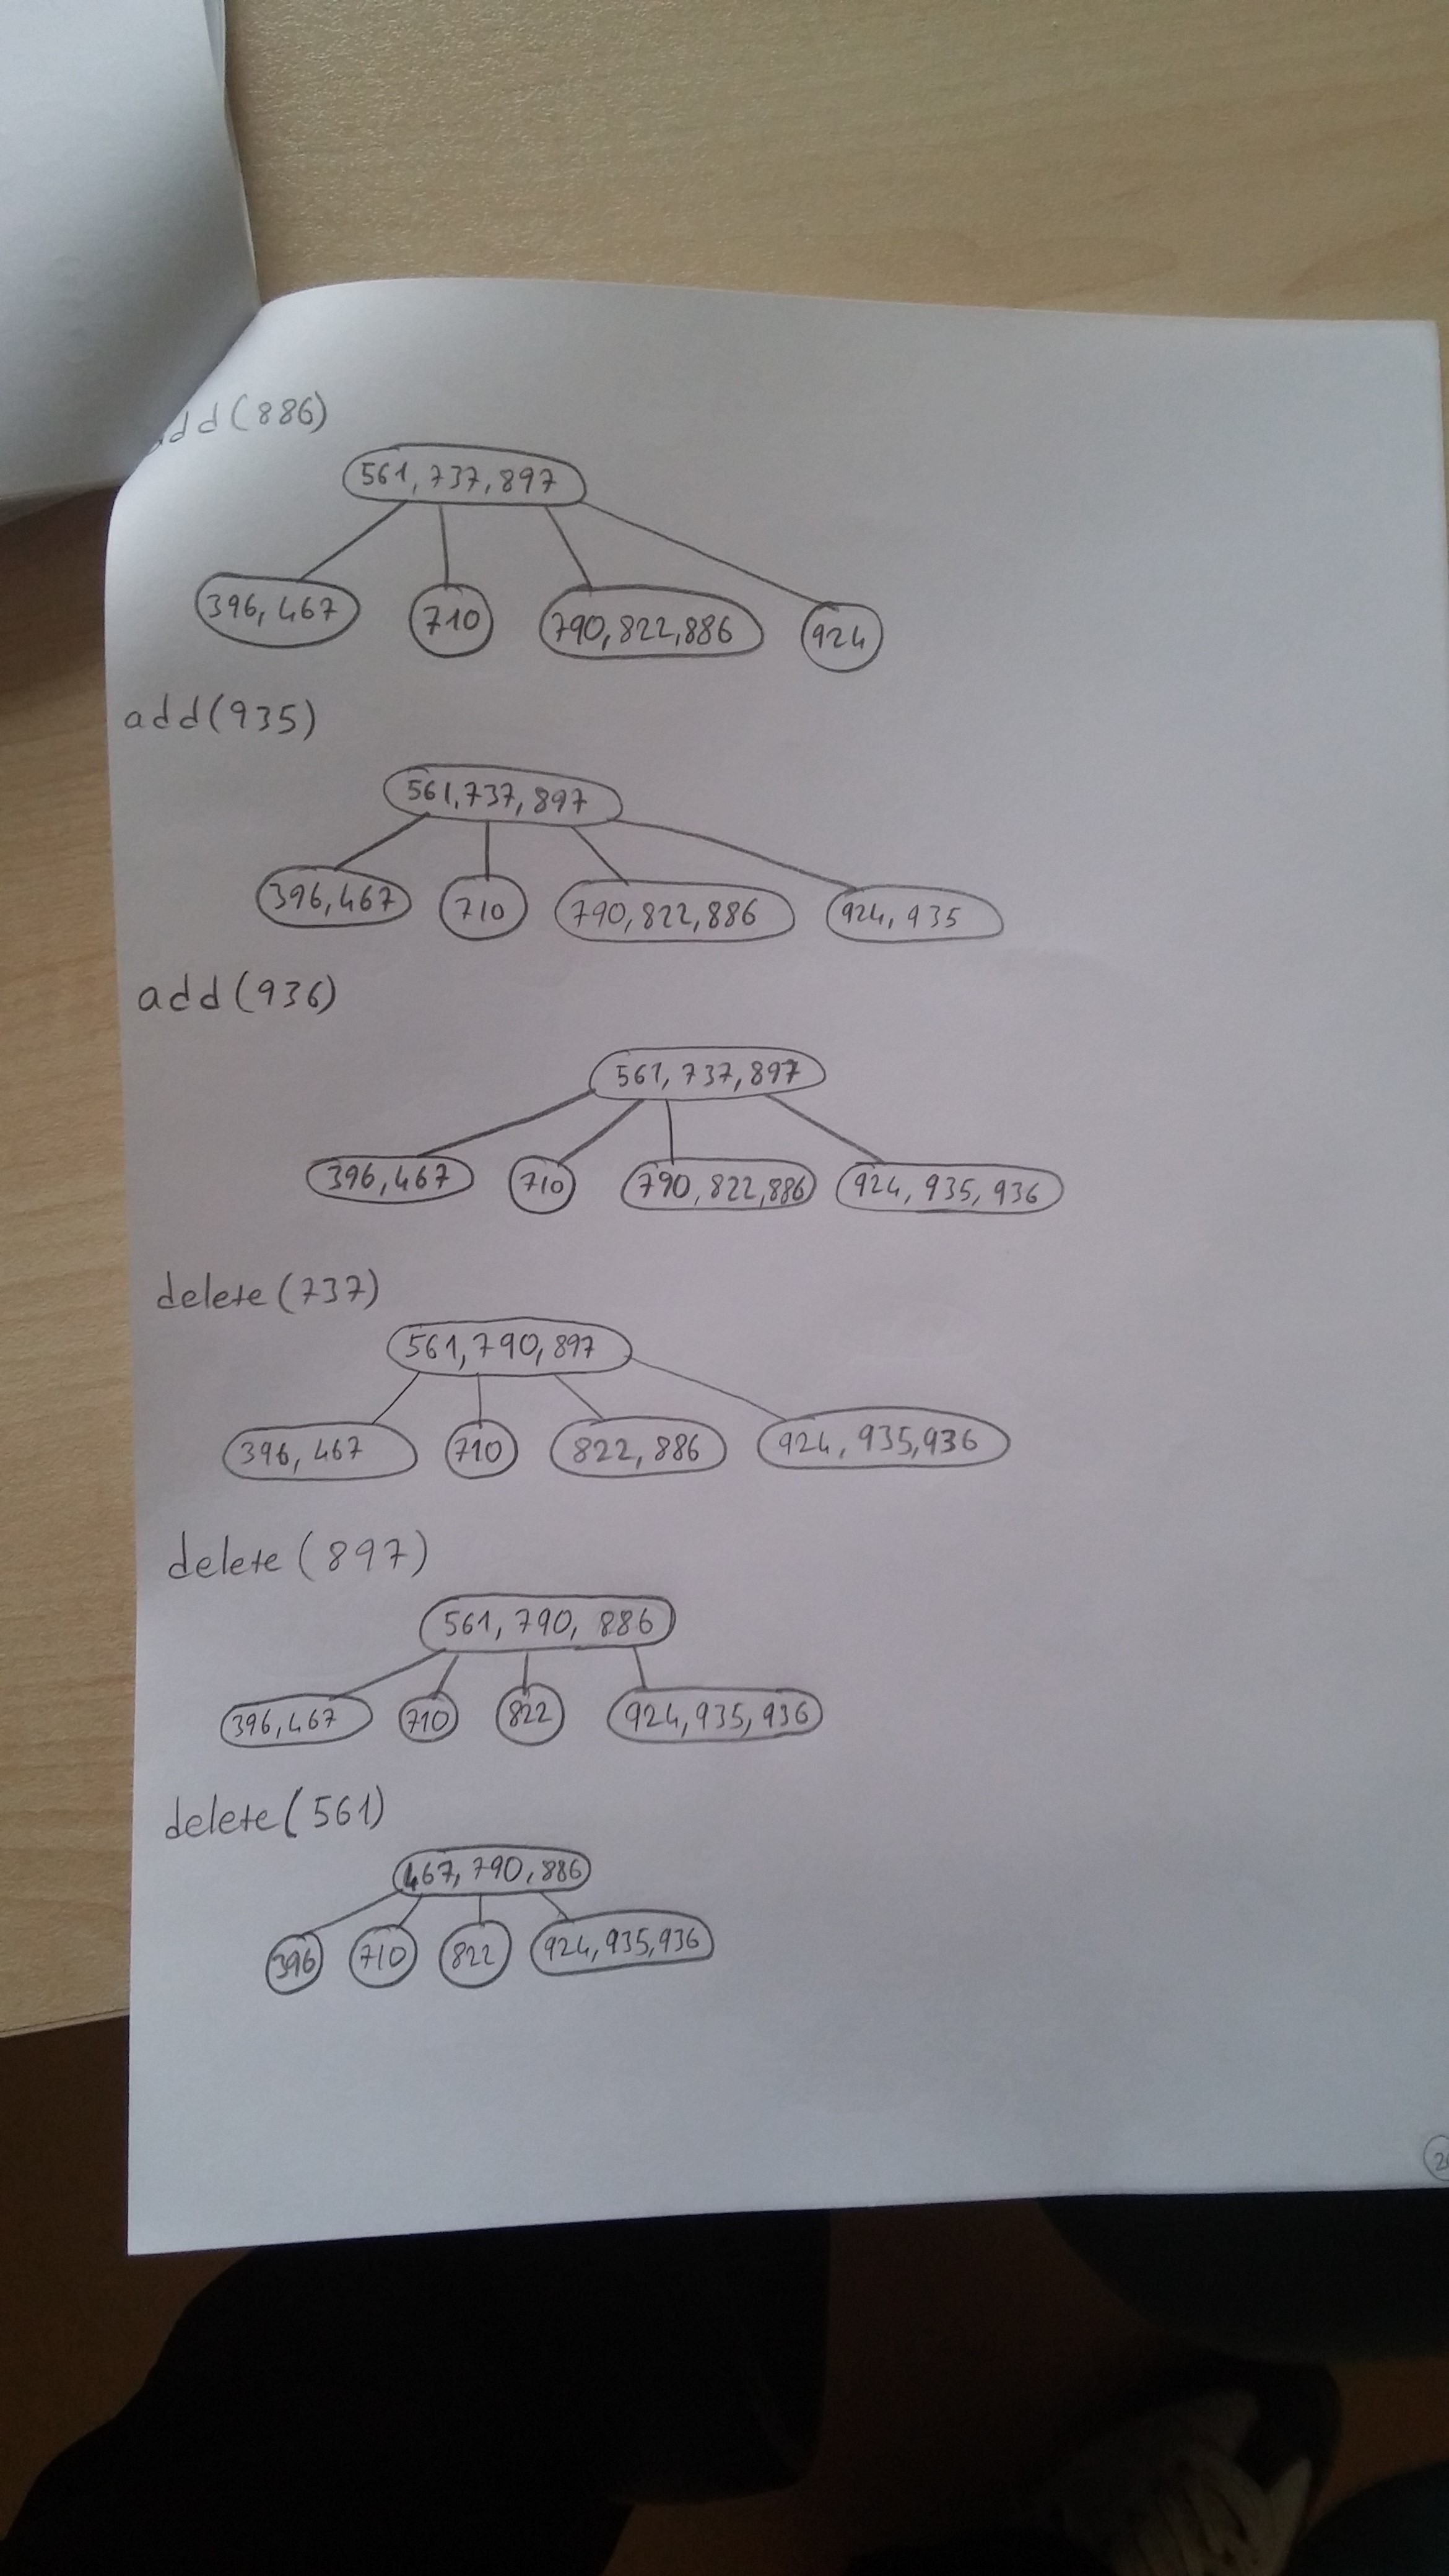 add(886)
561,737,897
396,467 710 790,822,886 924
add(935)
561,737,897
396,467 710 790,822,886 924,935
add(936)
561,737,897
396,467 710 790,822,886 924,935,936
delete(737)
561,790,897
396,467 710 822,886 924,935,936
delete(897)
561,790,886
396,467 710 822 924,935,936
delete(561)
467,790,886
396 710 822 924,935,936